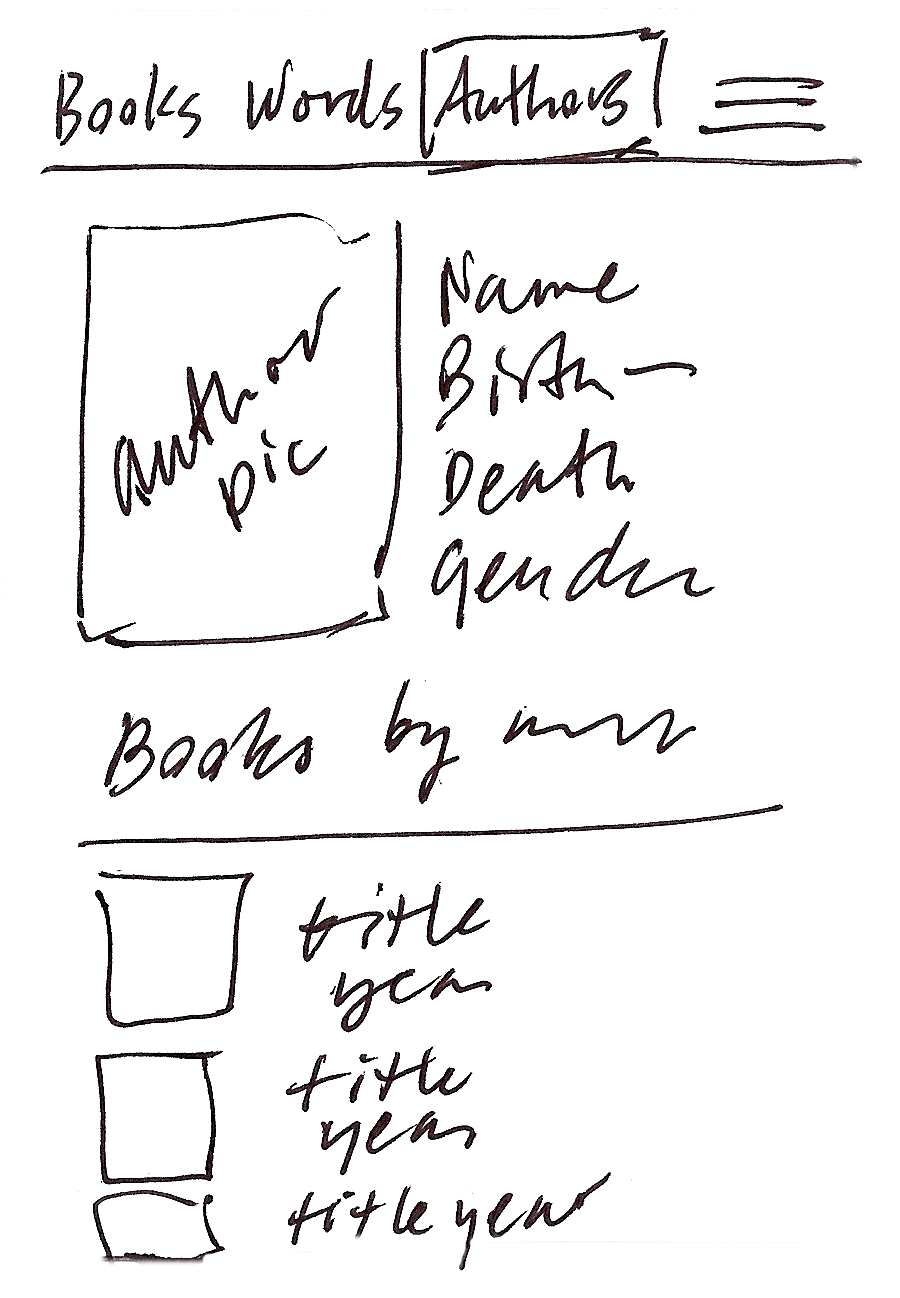 Books Words Authors
Author
pic
Name
Birth—
Death
gender
Books by
title
year
title
year
title year